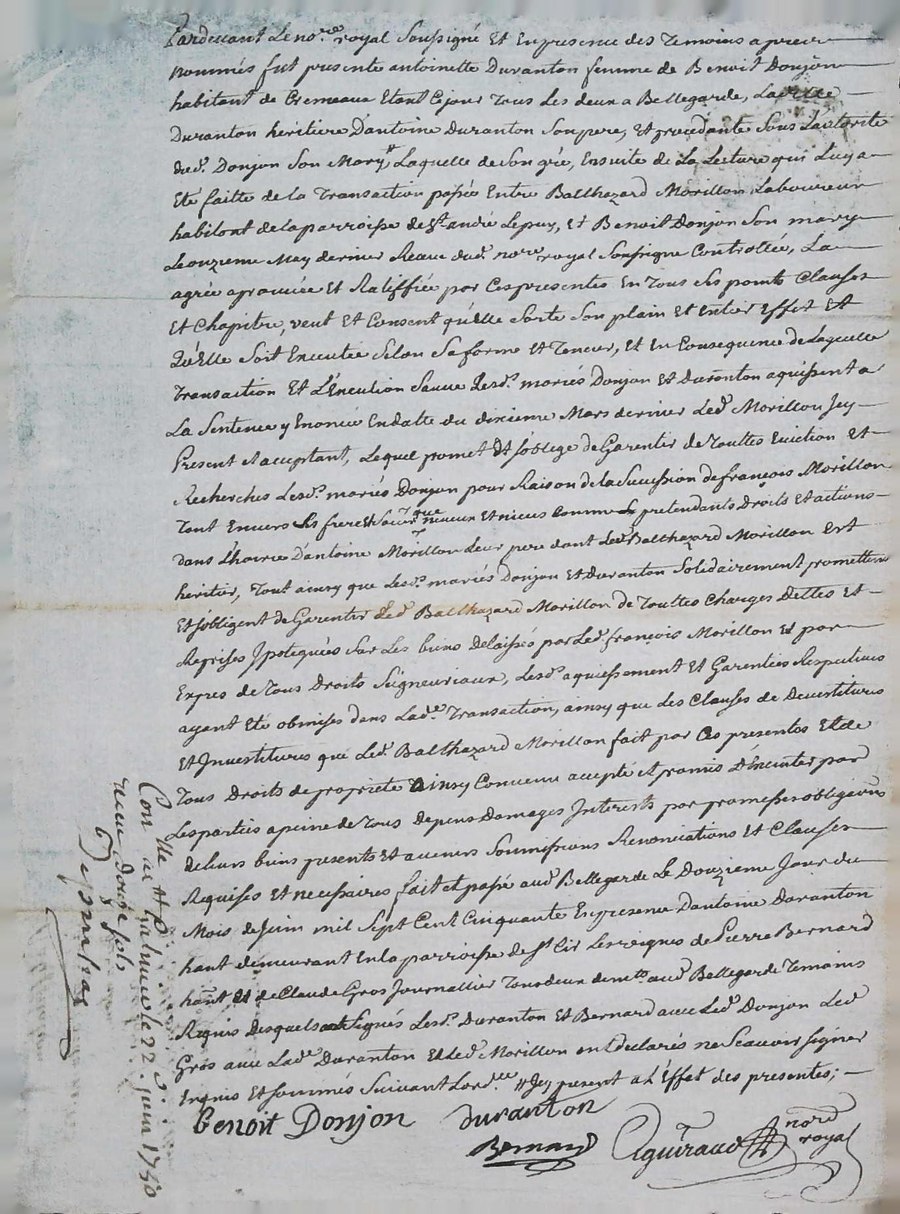 Pardevant Le no.re royal Soussigné Et En presence des Temoins apres
nommés fut presente antoinette Duranton femme de Benoit Donjon
habitant de Cremeaux Etant Cejour Tous Les deux a Bellegarde, Laditte
Duranton héritiere D'antoine Duranton Son pere, Et procedante Sous L'autorité
dud. Donjon Son Mary, Laquelle de Son gré, Ensuite de La Lecture qui Luy a
Eté faitte de la Transaction passée Entre Balthazard Morillon Laboureur
habitant de la parroisse de St. andré Le puy, Et Benoit Donjon Son mary
Le onzieme May dernier Receu dud. nore royal Soussigné Controllée, La
agrée aprouvée Et Ratiffiée par Ces presentes En Tous Ses points Clauses
Et Chapitre, veut Et Consent qu'elle Sorte Son plain Et Entier Effet Et
Qu'Elle Soit Executée Selon Sa forme Et Teneur, Et En Consequence de Laquelle
Transaction Et L'Execution Sauve Lesd. mariés Donjon Et Duranton aquissent a
La Sentence y Enoncée En datte du dixieme Mars dernier Led. Morillon Jcy
Present Acceptant, Lequel promet Et soblige de Garentir de Touttes Eviction Et
Recherches Lesd. mariés Donjon pour Raison de la Succession de françois Morillon
Tant Envers Ses frere Et Soeur que neveux Et nieces Comme pretendants Droits Et actions
dans L'hoirie D'antoine Morillon Leur pere dont Led. Balthazard Morillon Est
heritier, Tout ainsy que Lesd. mariés Donjon Et Duranton Solidairement promettent
Et sobligent de Garentir Led. Balthazard Morillon de Touttes Charges Dettes Et
Reprises Jpotequées Sur Les biens Delaissés par Led. françois Morillon Et par
Expres de Tous Droits Seigneuriaux, Lesd. aquissement Et Garenties Respectives
ayant Eté obmises dans Lad. Transaction, ainsy que Les Clauses de Devestitures
Et Jnvestitures que Led. Balthazard Morillon fait par Ces presentes Et de
Tous Droits de proprieté Ainsy Convenu accepté Et promis D'éxecuter par
Les parties a peine de Tous Depens Domages Interests par promesses obligations
de Leurs biens presents Et avenirs Soumissions Renonciations Et Clauses
Requises Et necessaires fait et passé aud. Bellegarde Le Douzieme Jour du
Mois de Juin mil Sept Cent Cinquante En presence D'antoine Duranton
hant demeurant En la parroisse de St. Cir Les vignes de Pierre Bernard
hant Et de Claude Gros Journallier Tous deux demts. aud. Bellegarde Temoins
Requis Desquels ont Signés Lesd. Duranton Et Bernard avec Led. Donjon Led.
Gros avec Lad. Duranton Et Led. Morillon ont declarés ne Scavoir Signer
Enquis Et Sommés Suivant Lord.ce Jcy present a L'Effet des presentes;
Benoit Donjon Duranton
Bernard nore
royal
Con.lle a St Galmier le 22 juin 1750
receu douze sols